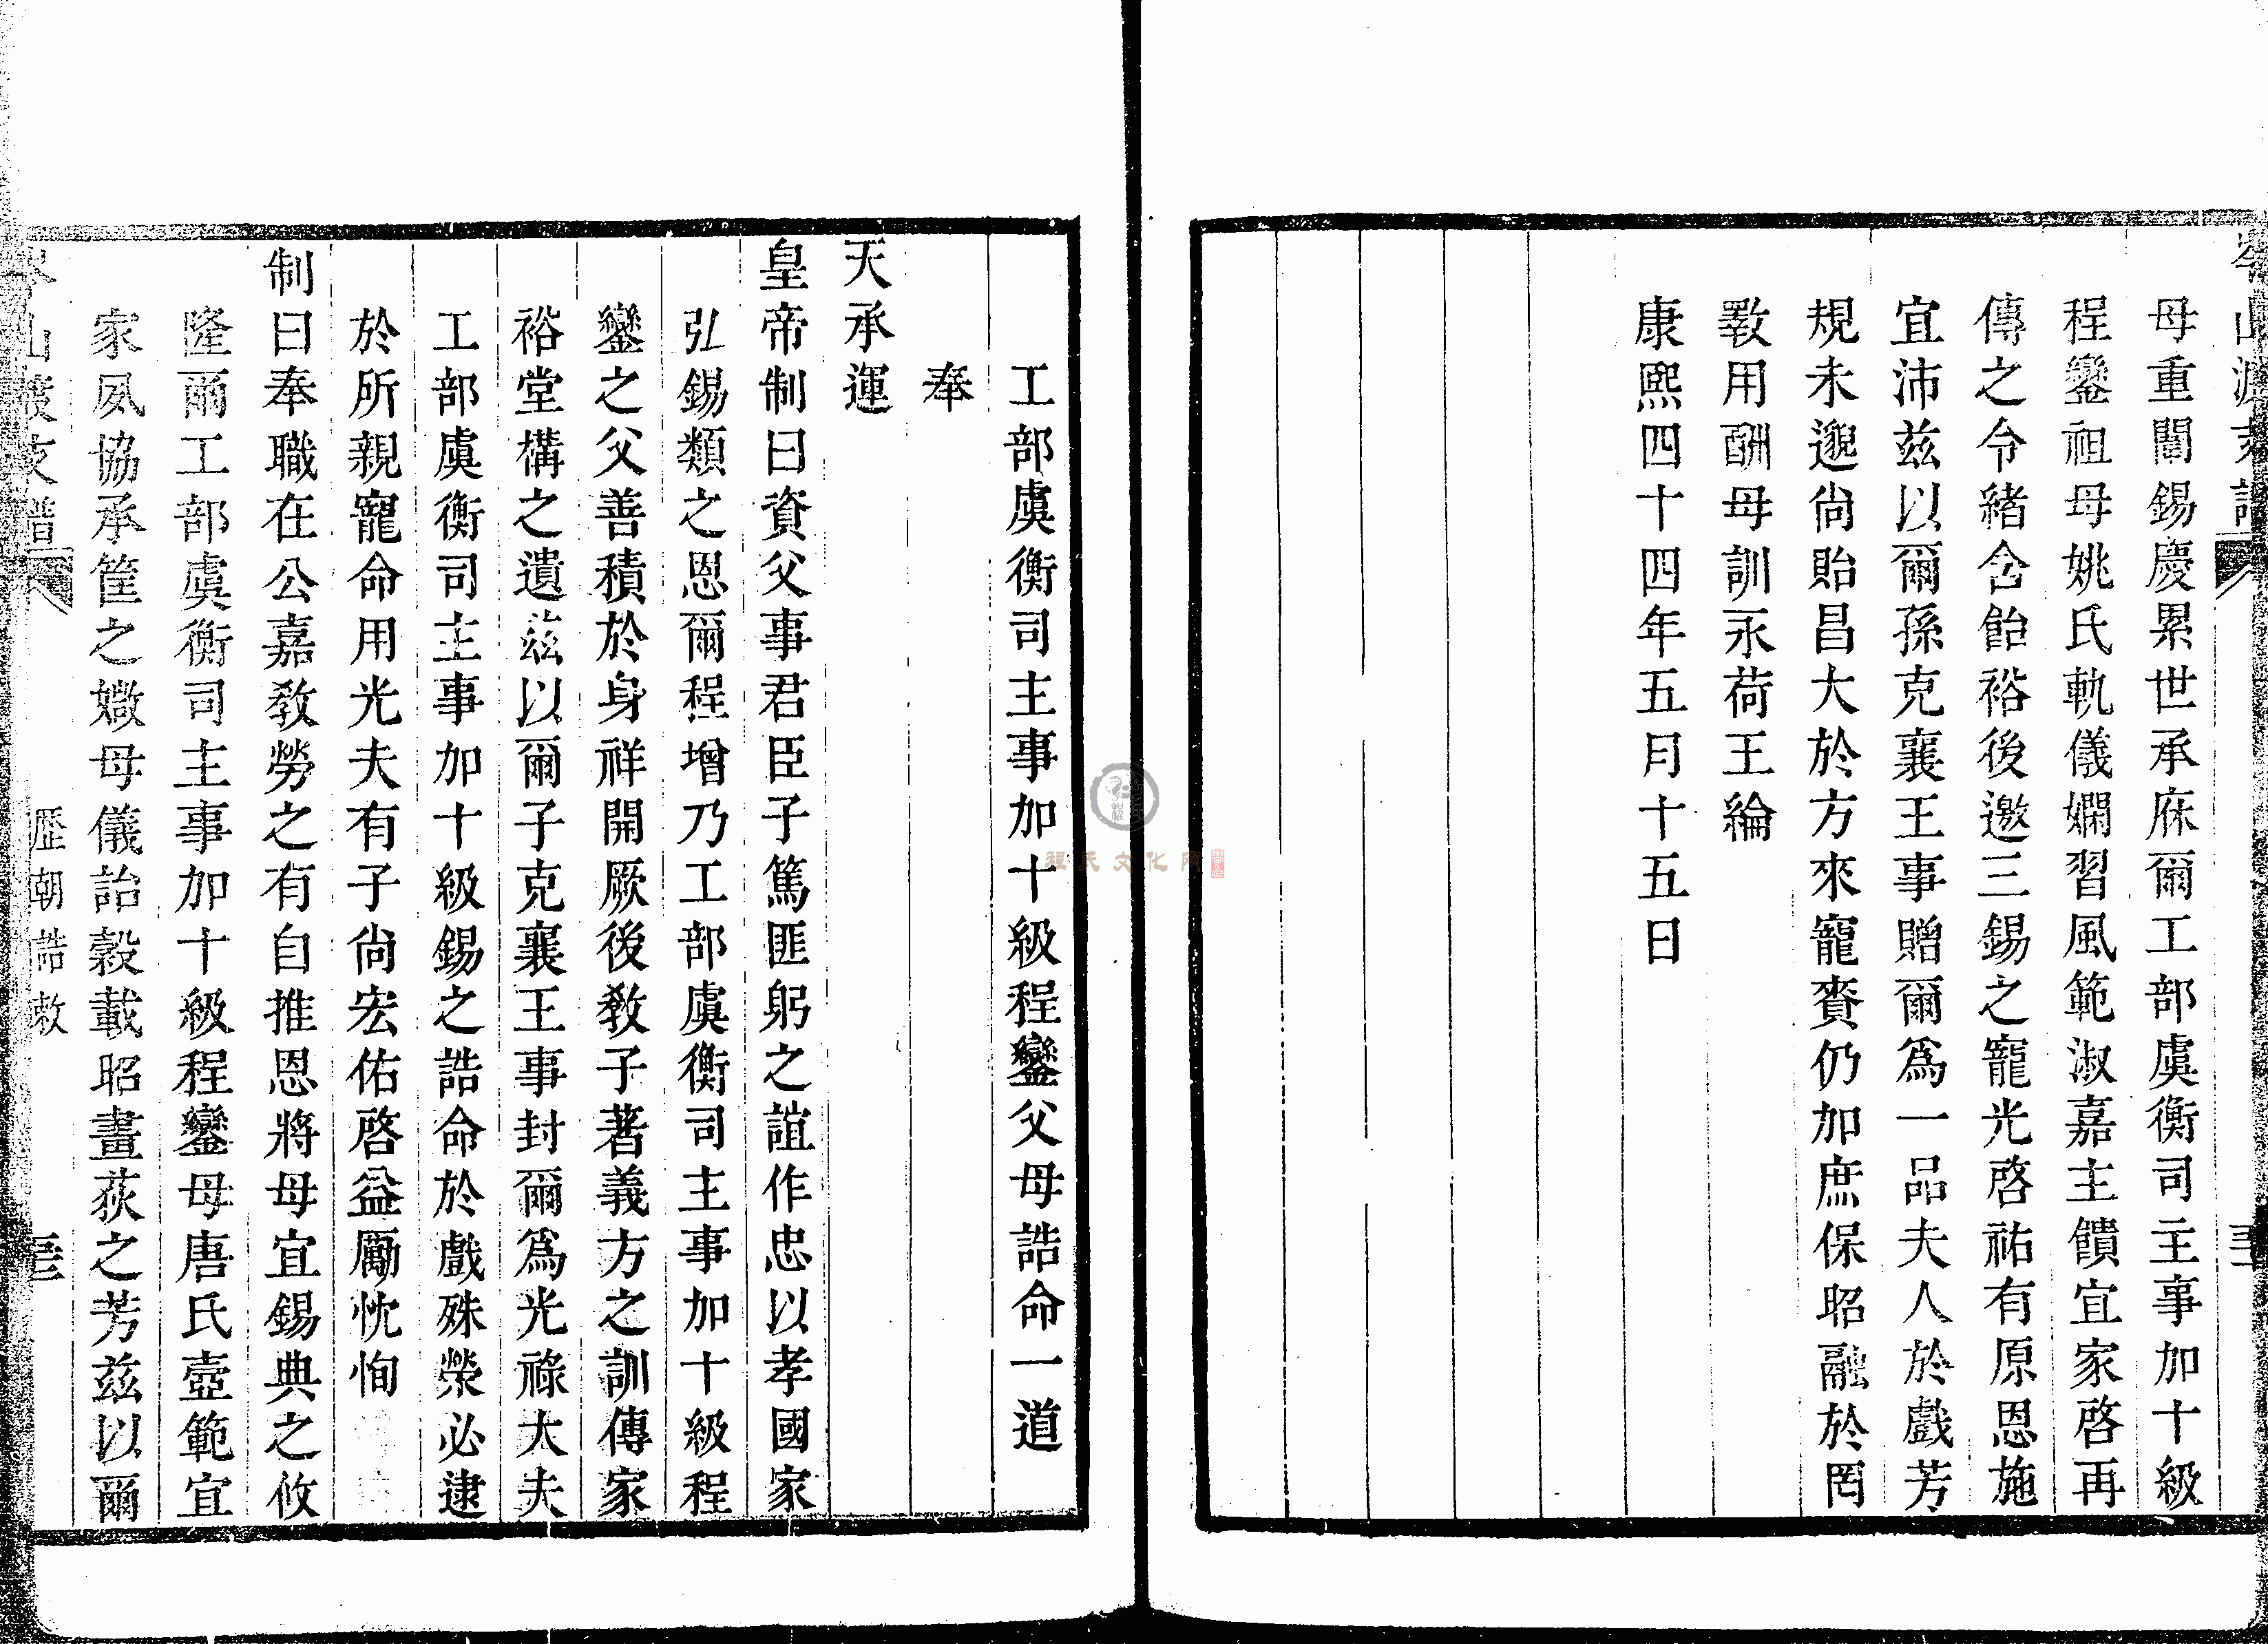 母重闈錫慶累世承庥爾工部虞衡司主事加十級
程鑾祖母姚氏軌儀嫻習風範淑嘉主饋宜家啓再
傳之令緒含飴裕後邀三錫之寵光啓祐有原恩施
宜沛茲以爾孫克襄王事贈爾爲一品夫人於戲芳
規未邈尚貽昌大於方來寵賚仍加庶保昭融於罔
斁用酬母訓永荷王綸
康熙四十四年五月十五日
工部虞衡司主事加十級程鑾父母誥命一道
奉
天承運
皇帝制曰資父事君臣子篤匪躬之誼作忠以孝國家
弘錫類之恩爾程增乃工部虞衡司主事加十級程
鑾之父善積於身祥開厥後敎子著義方之訓傳家
裕堂構之遺茲以爾子克襄王事封爾爲光祿大夫
工部虞衡司主事加十級錫之誥命於戲殊榮必逮
於所親寵命用光夫有子尚宏佑啓益勵忱恂
制曰奉職在公嘉敎勞之有自推恩將母宜錫典之攸
隆爾工部虞衡司主事加十級程鑾母唐氏壼範宜
家夙協承筐之媺母儀詒穀載昭畫荻之芳茲以爾
歷朝誥敕
程氏文化网